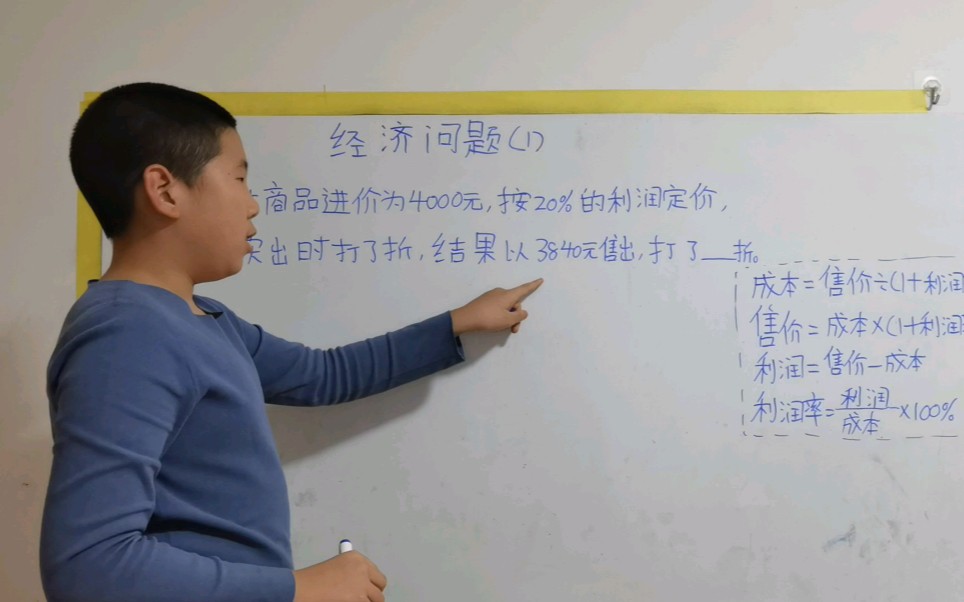 经济问题(1)
商品进价为4000元,按20%的利润定价,
卖出时打了折,结果以3840元售出,打了__折。
成本=售价÷(1+利润
售价=成本×(1+利润
利润=售价-成本
利润率=利润/成本×100%